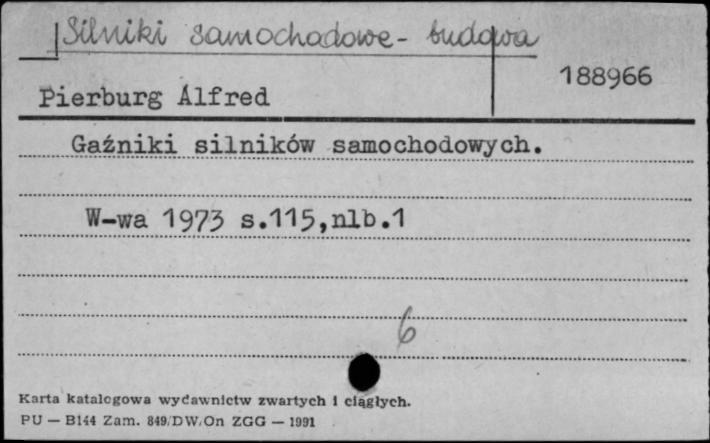 Silniki samochodowe - budowa
188966
Pierburg Alfred
Gaźniki silników samochodowych.
W-wa 1973 s.115,nlb.1
6
Karta katalogowa wydawnictw zwartych i ciągłych.
PU — B144 Zam. 849/DW/On ZGG — 1991